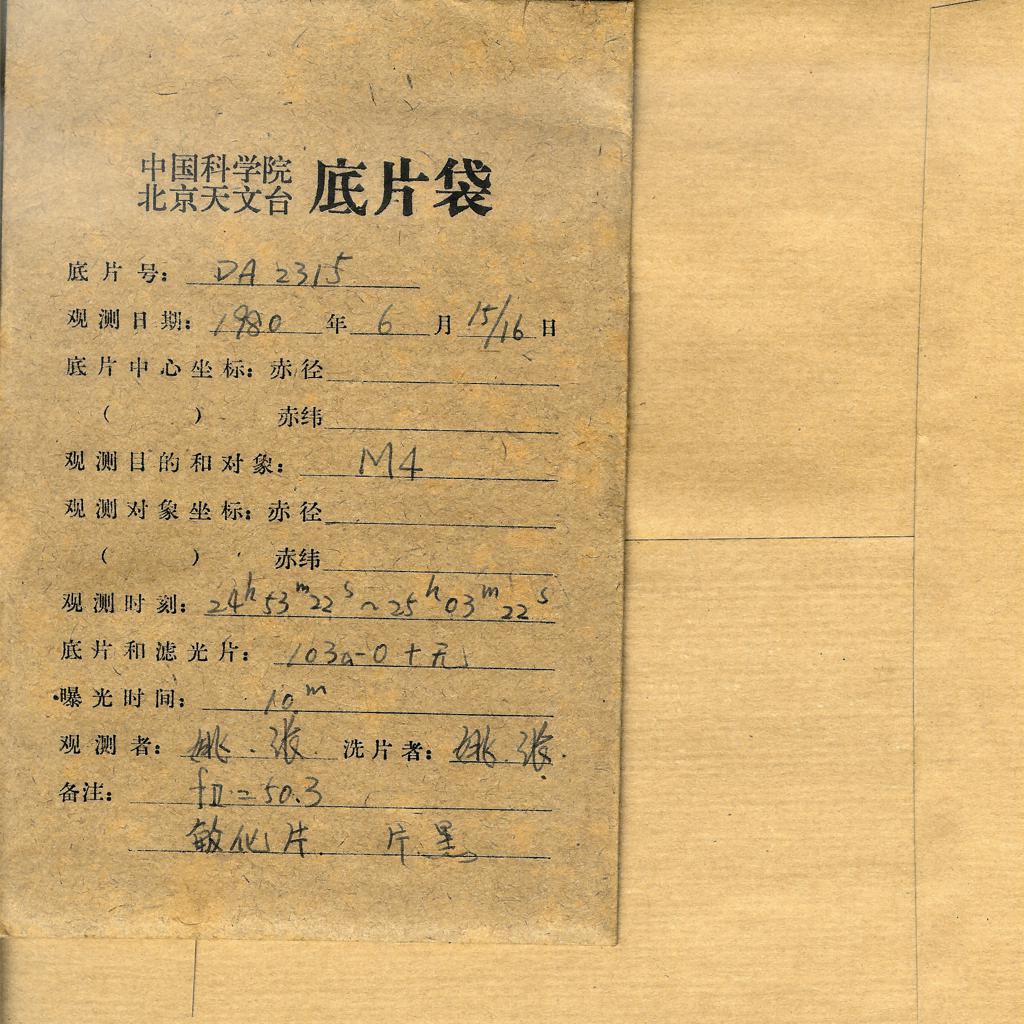 中国科学院
北京天文台 底片袋
底片号: DA 2315
观测日期: 1980 年 6 月 15/16 日
底片中心坐标: 赤径
( ) 赤纬
观测目的和对象: M4
观测对象坐标: 赤径
( ) 赤纬
观测时刻: 24h53m22s~25h03m22s
底片和滤光片: 103a-O+无
曝光时间: 10m
观测者: 姚.张. 洗片者: 姚.张.
备注: = 50.3
敏化片. 片黑